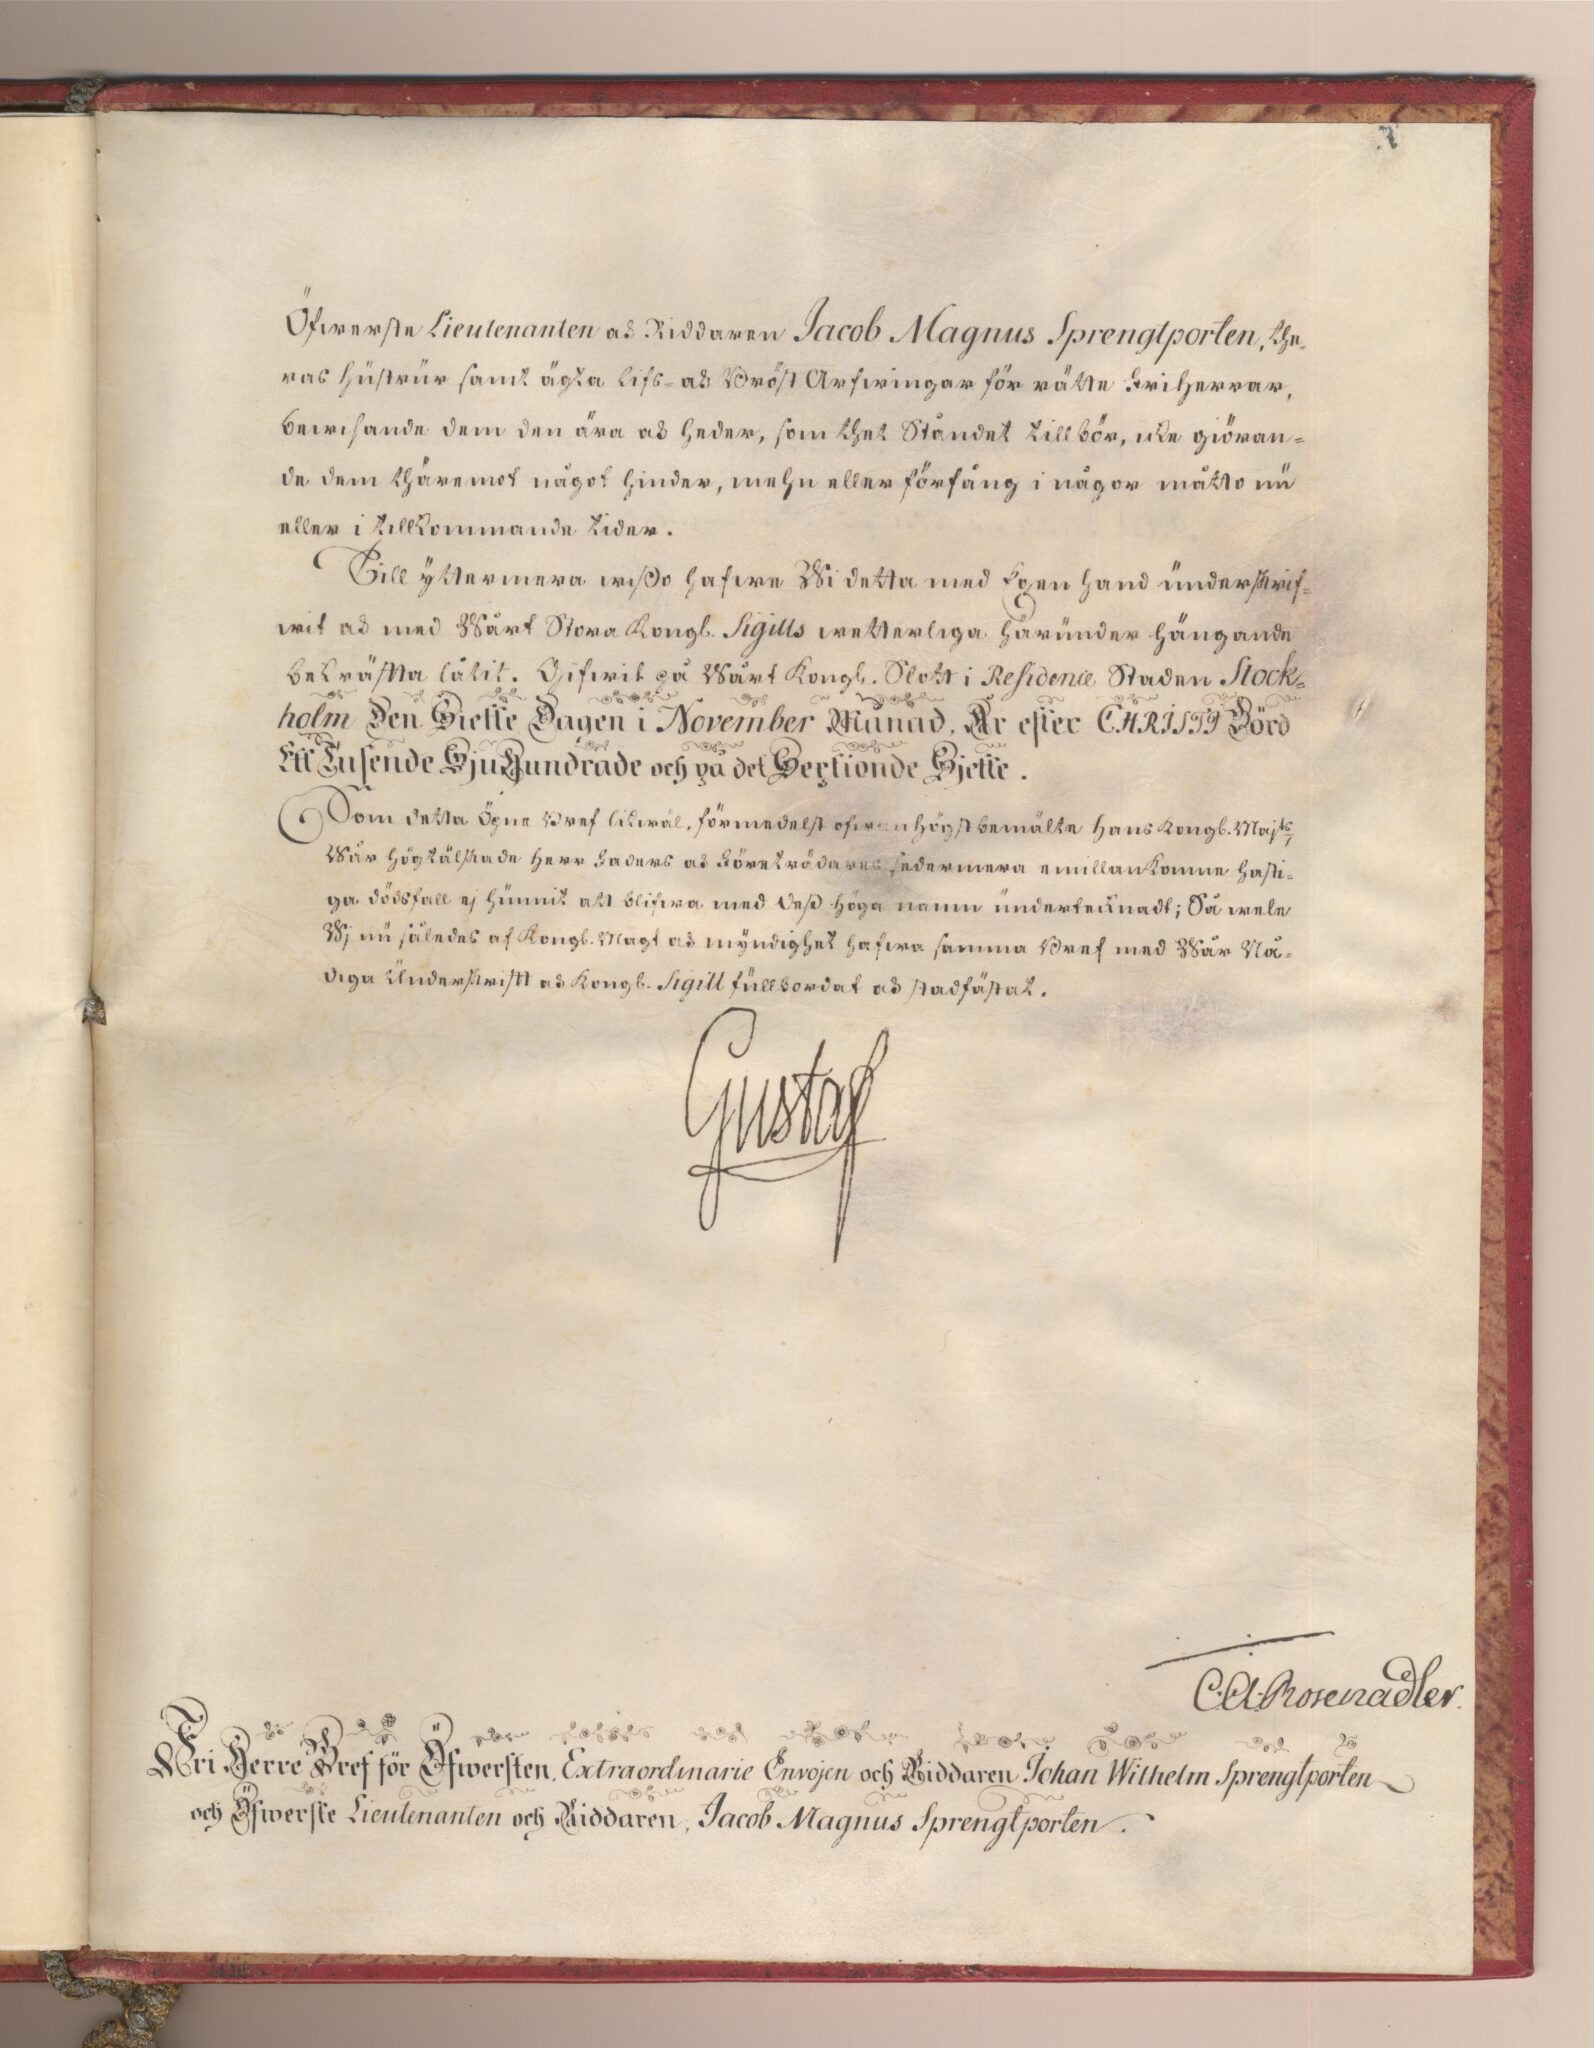 Öfwerste Lieutenanten och Riddaren Jacob Magnus Sprengtporten, the-
ras Hustrur samt ägta Lifs- och Bröst Arfwingar för rätte Friherrar,
bewisande dem den ära och heder, som thet Ståndet tillbör, icke giöran-
de dem thäremot något hinder, mehn eller förfång i någor måtto nu
eller i tillkommande tider.
Till yttermera wißo hafwe Wi detta med Egen hand underskrif-
wit och med Wårt Stora Kongl. Sigills wetterliga härunder hängande
bekräffta låtit. Gifwit på Wårt Kongl. Slott i Residence Staden Stock-
holm Den Siette Dagen i November Månad, År efter CHRISTI Börd
Ett Tusende Sju Hundrade och på det Sextionde Sjette.
Som detta Öpne Bref likwäl, förmedelst ofwanhögstbemälte Hans Kongl. Majts,
Wår Högtälskade Herr Faders och Företrädares sedermera emillankomne hasti-
ga dödsfall ej hunnit att blifwa med Deß Höga namn undertecknadt; Så wele
Wj nu således af Kongl. Magt och myndighet hafwa samma Bref med Wår Nå-
diga Underskrifft och Kongl. Sigill fullbordat och stadfästat.
Gustaf
C. A. Rosenadler.
Fri Herre Bref för Öfwersten, Extraordinarie Envojen och Riddaren Johan Wilhelm Sprengtporten
och Öfwerste Lieutenanten och Riddaren, Jacob Magnus Sprengtporten.